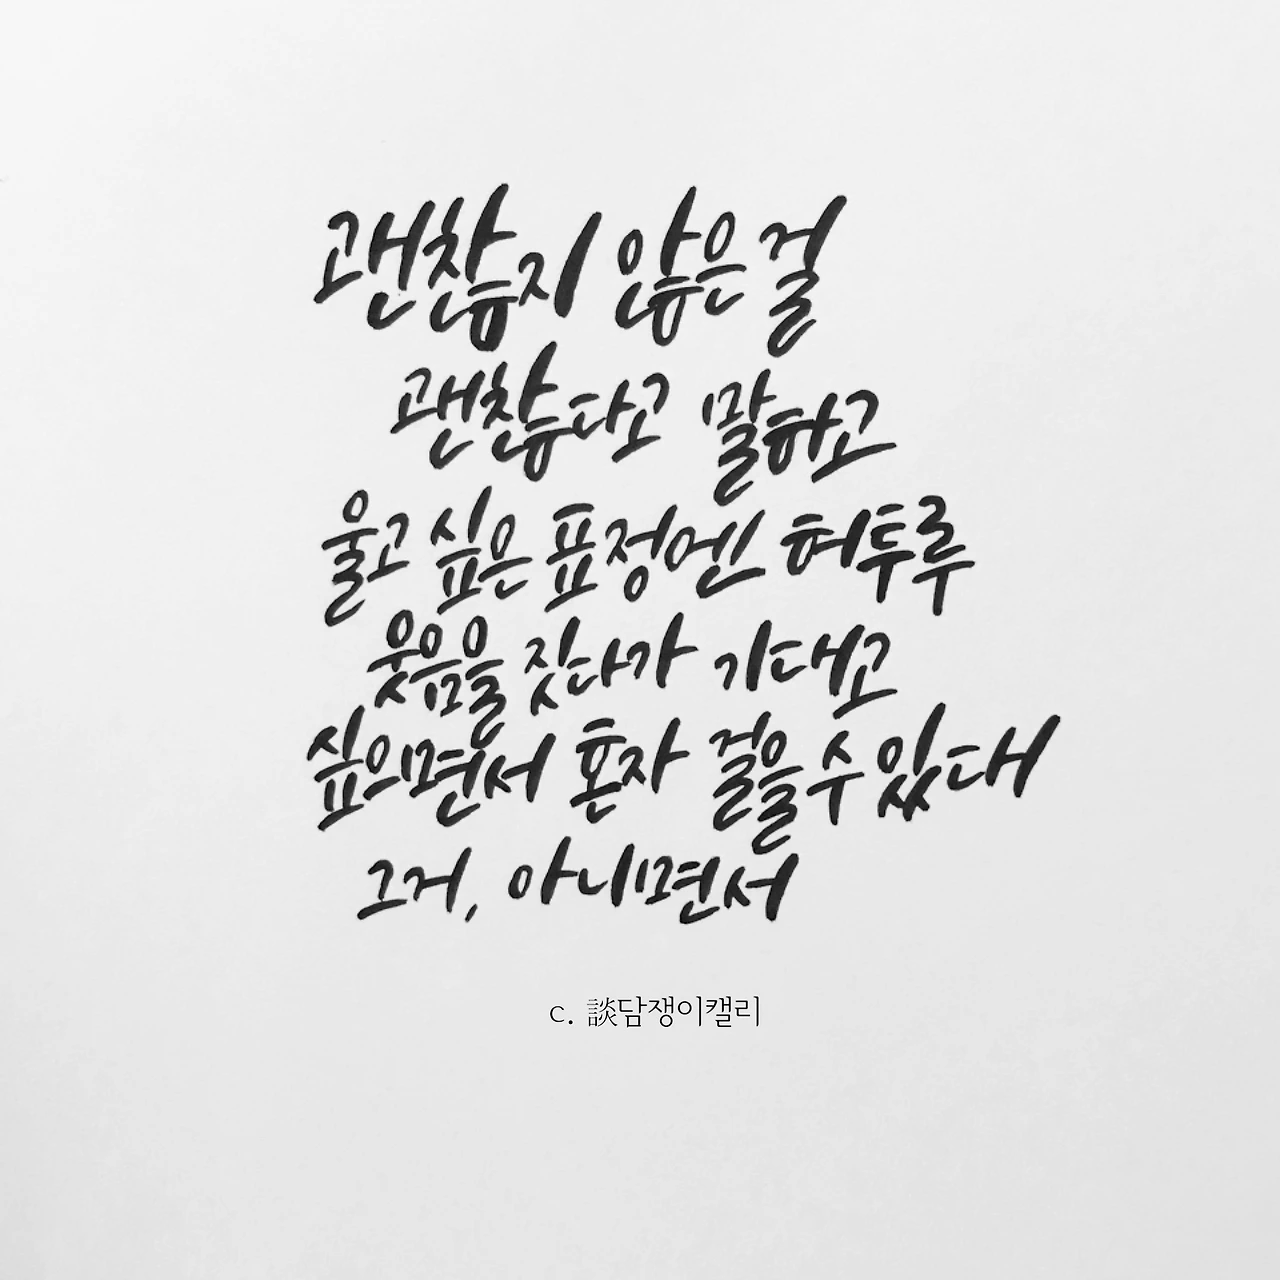 괜찮지 않은 걸
괜찮다고 말하고
울고 싶은 표정엔 허투루
웃음을 짓다가 기대고
싶으면서 혼자 걸을 수 있대
그거, 아니면서
c. 談담쟁이캘리